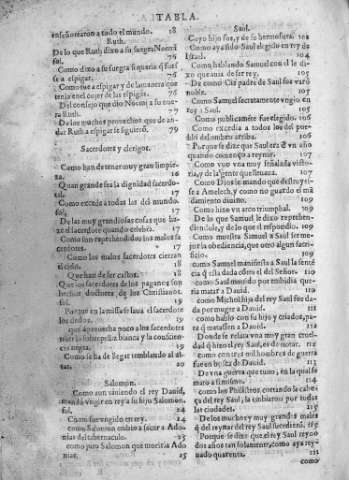 TABLA.
enseñorearon a todo el mundo. 18
Ruth.
De lo que Ruth dixo a su suegra Noemi
sol. 76
Como dixo a su suegra si queria q̃ fuesse
a espigar. 76
Como fue a espigar y de la manera que
tenia en el coger de las espigas. 76
Del consejo que dio Noemi a su nuera
Ruth. 77
De los muchos prouechos que de andar
Ruth a espigar se siguierõ. 79
Sacerdotes y clerigos.
Como han de tener muy gran limpieza.
16
Quan grande sea la dignidad sacerdotal.
17
Como excede a todas las del mundo.
sol, 17
De las muy grandiosas cosas que haze
el sacerdote quando celebra. 17
Como son reprehendidos los malos sacerdotes
17
Como los malos sacerdotes cierran
18
Que han de ser castos. 18
Que los sacerdotes de los paganos son
hechos doctores, de los Christianos.
fol. 19
Porque en la missa laua el sacerdote
los dedos. 19
que aprouecha poco a los sacerdotes
la sobrepelliz blanca y la consciencia
negra. 19
Como se ha de llegar temblando al altar
20
Salomon.
Como aun viuiendo el rey Dauid,
manda vngir en rey a su hijo Salomon.
fol. 24
Como fue vngido en rey. 24
como Salomon embio a sacar a Adonias
del tabernaculo. 25
como juro Salomon que moriria Adonias
25
Saul.
Cuyo hijo fue, y de su hermosura. 105
Como ayan sido Saul elegido en rey de
Israel. 104
Como hablando Samuel con el le dixo
que auia de ser rey. 105
De como Cis padre de Saul fue varõ
noble. 105
Como Samuel secretamente vngio en
rey a Saul. 105
Como publicamẽte fue elegido. 106
Como excedia a todos los del pueblo
del ombro arriba. 106
Porque se dize que Saul era d̃ vn año
quando començo a reynar. 107
Como vuo vna muy señalada victoria,
y de la gente que lleuaua. 107
Como Dios le mando que destruyesse
a Amelech, y como no guardo el mãdamiento
diuino. 109
Como hizo vn arco triumphal. 109
De lo que Samuel le dixo reprehendiendole,
y de lo que el respondio. 109
Como muestra Samuel a Saul ser mejor
la obediencia, que otro algun sacrificio.
109
como Samuel manifiesta a Saul la sentẽcia
q̃ esta dada cõtra el del Señor. 110
como Saul mouido por embidia queria
matar a Dauid. 111
como Michol hija del rey Saul fue dada
por muger a Dauid. 112
como hablo con su hijo y criados, para
q̃ matassen a Dauid. 112
Donde se relata vna muy gran crueldad
q̃ hizo el rey Saul, es de notar. 112
como con tres mil hombres de guerra
fue en busca de Dauid. 112
De vna guerra que tuuo, en la qual se
mato a si mismo. 114
como los Philisteos cortando la cabeça
del rey Saul, la embiaron por todas
las ciudades. 115
De los muchos y muy grandes males
q̃ del reynar del rey Saul sucediero. 115
Porque se dize que el rey Saul reyno
dos años tan solamente, como aya reynado
quarenta. 121
como